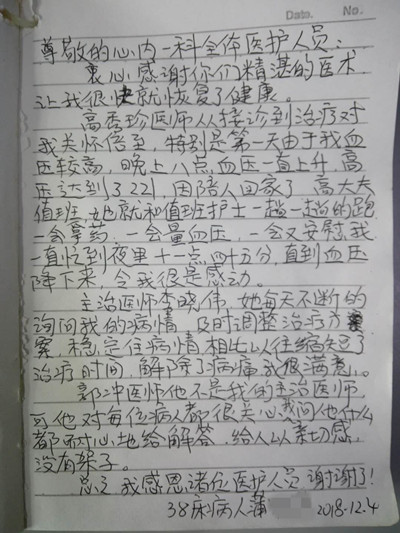 Date. No.
尊敬的心内一科全体医护人员：
衷心感谢你们精湛的医术
让我很快就恢复了健康。
高秀珍医师从接诊到治疗对
我关怀倍至，特别是第一天由于我血
压较高，晚上八点，血压一直上升，高
压达到了221，因陪人回家了 高大夫
值班，她就和值班护士一趟一趟的跑
一会拿药，一会量血压，一会又安慰我
一直忙到夜里十一点，四十五分，直到血压
降下来，令我很是感动。
主治医师李晓伟，她每天不断的
询问我的病情 及时调整治疗方
案，稳定住病情 相比以往缩短了
治疗时间，解除了病痛 我很满意。
郭冲医师他不是我的主治医师，
可他对每位病人都很关心，我问他什么
都耐心地给解答，给人以亲切感，
没有架子。
总之 我感恩诸位医护人员，谢谢了！
38床病人蒲 2018.12.4